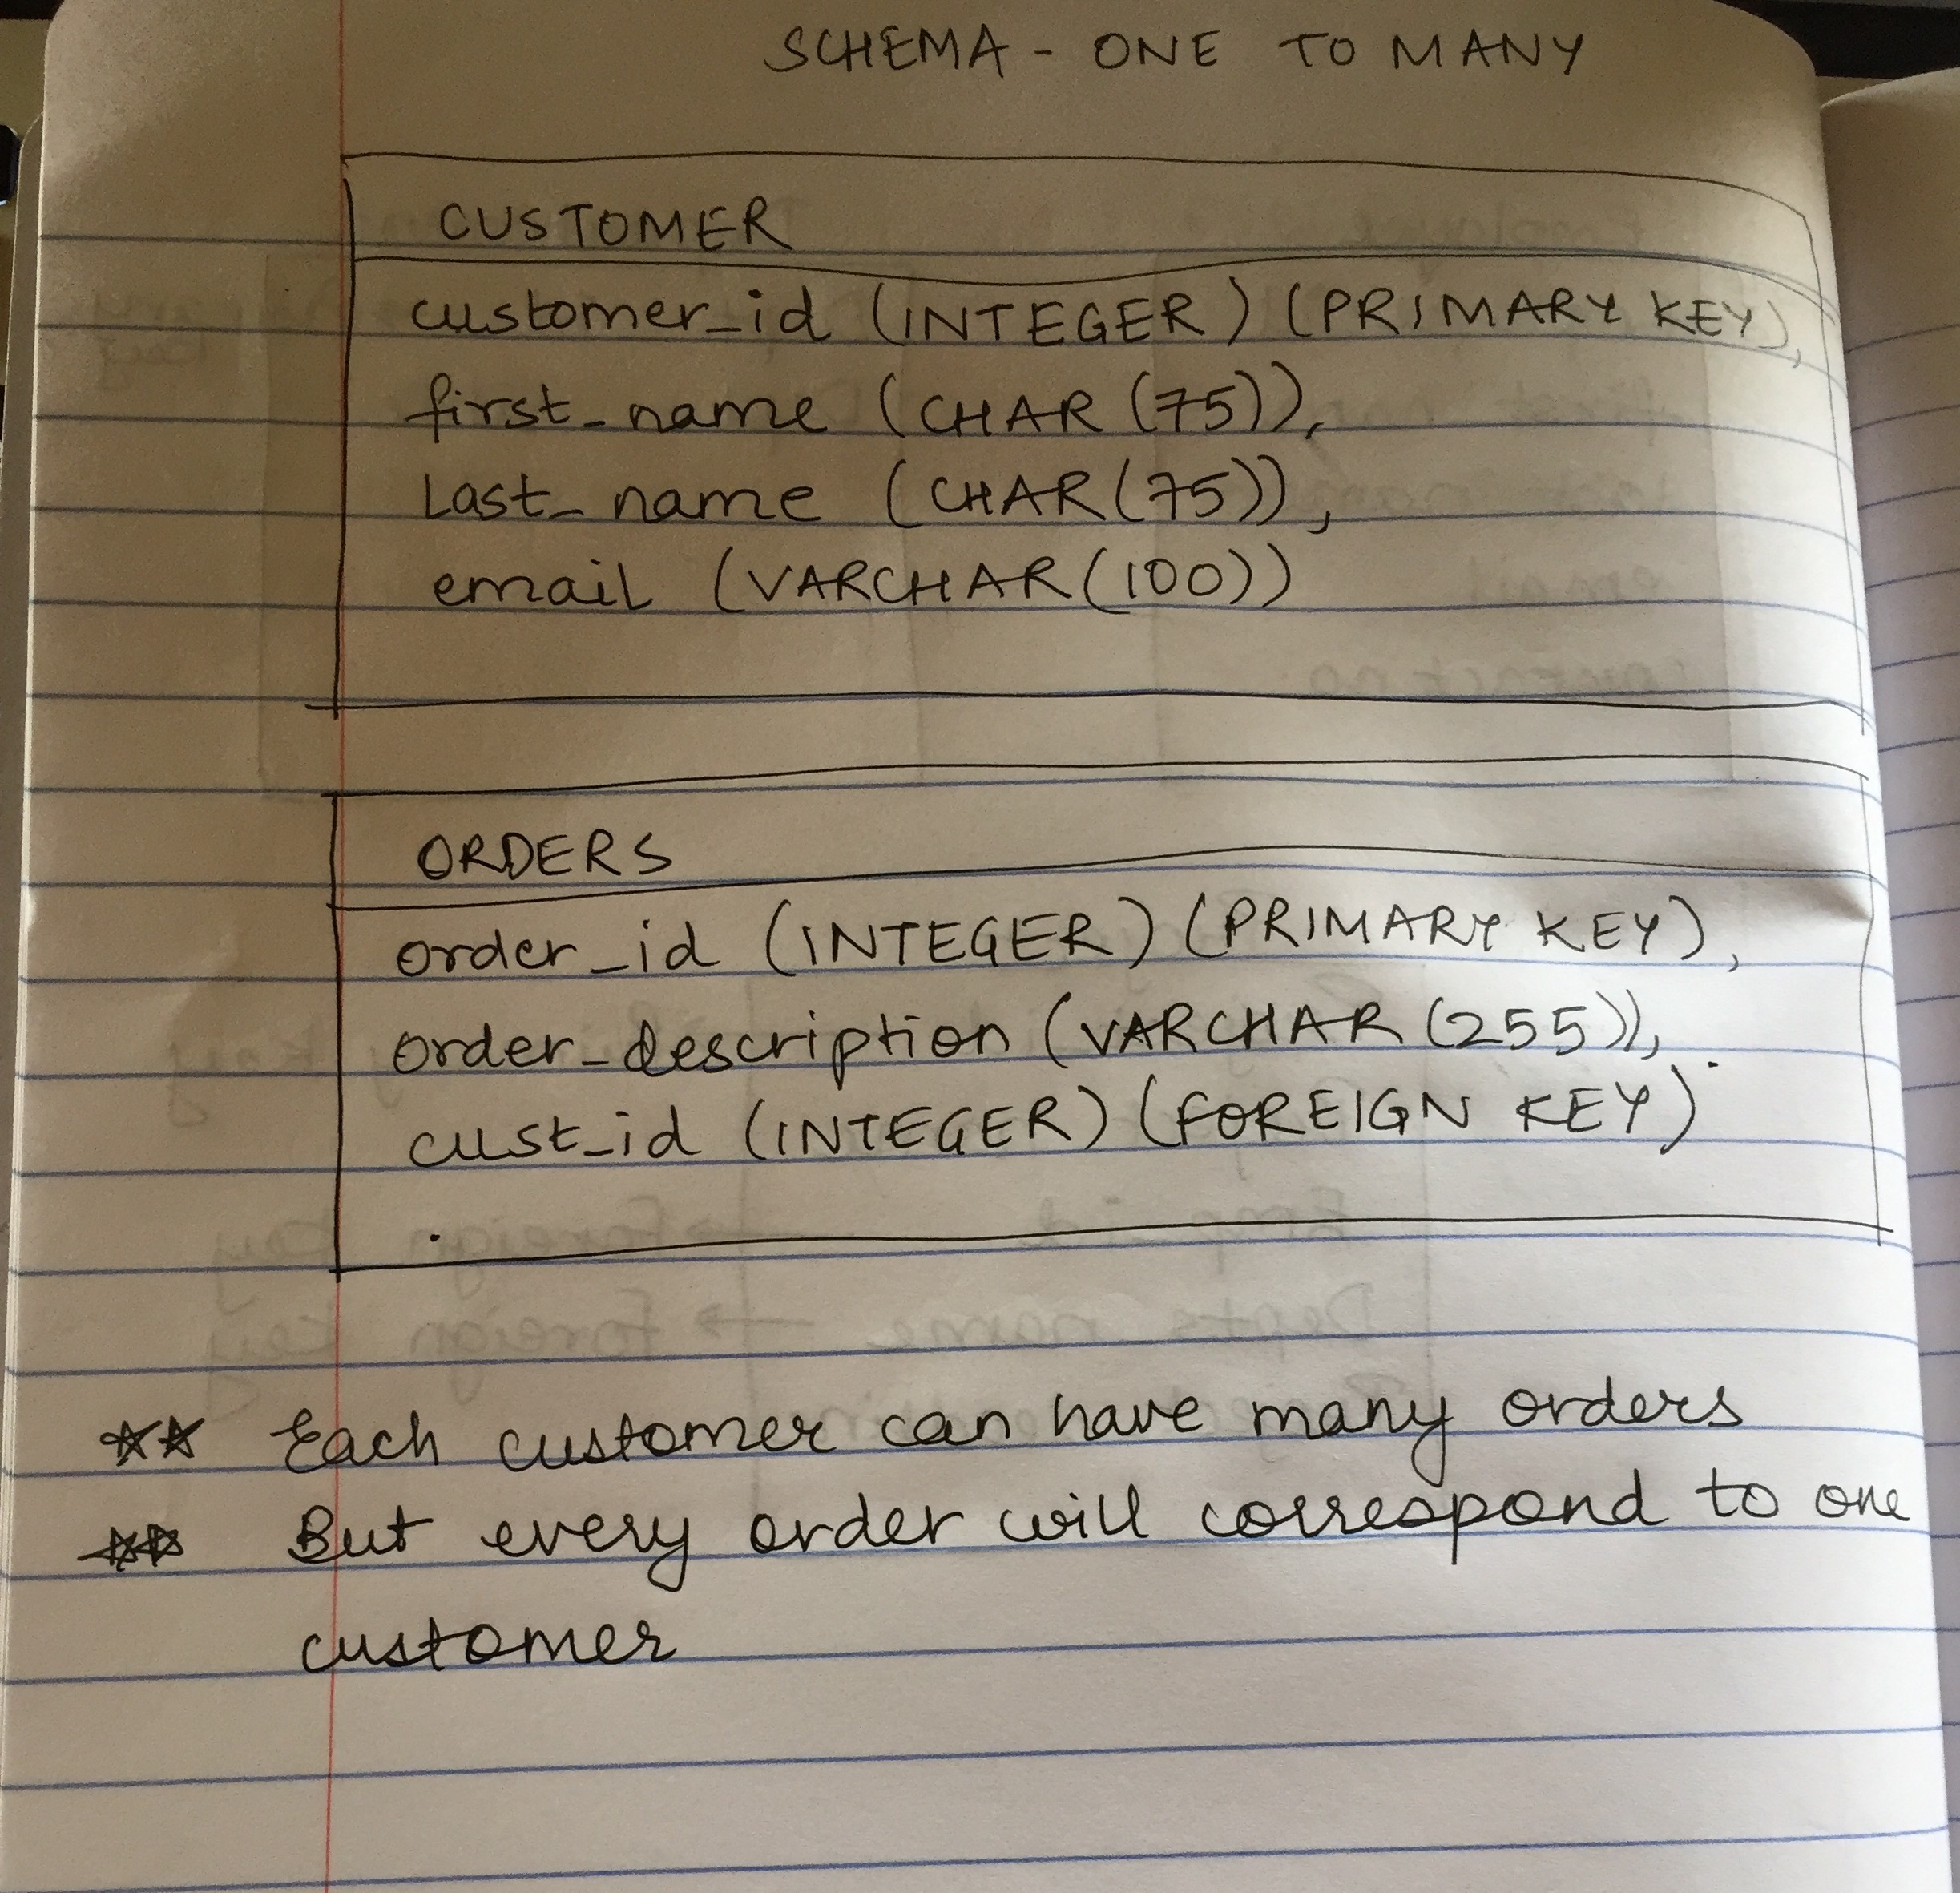 SCHEMA - ONE TO MANY
CUSTOMER
customer_id (INTEGER) (PRIMARY KEY),
first_name (CHAR (75)),
Last_name (CHAR (75)),
email (VARCHAR (100))
ORDERS
order_id (INTEGER) (PRIMARY KEY),
order_description (VARCHAR (255)),
cust_id (INTEGER) (FOREIGN KEY)
** Each customer can have many orders
** But every order will correspond to one
customer